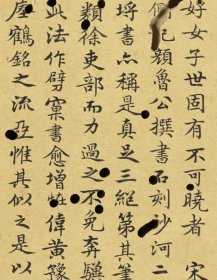 好女子世固有不可曉者 宋
側記顏魯公撰書石刻沙河二
埒書亦稱是真足三絕第其筆
類徐吏部而力過之不免奔驥
此法作擘窠書愈增壯偉黃豫
瘞鶴銘之流亞惟其似之是以